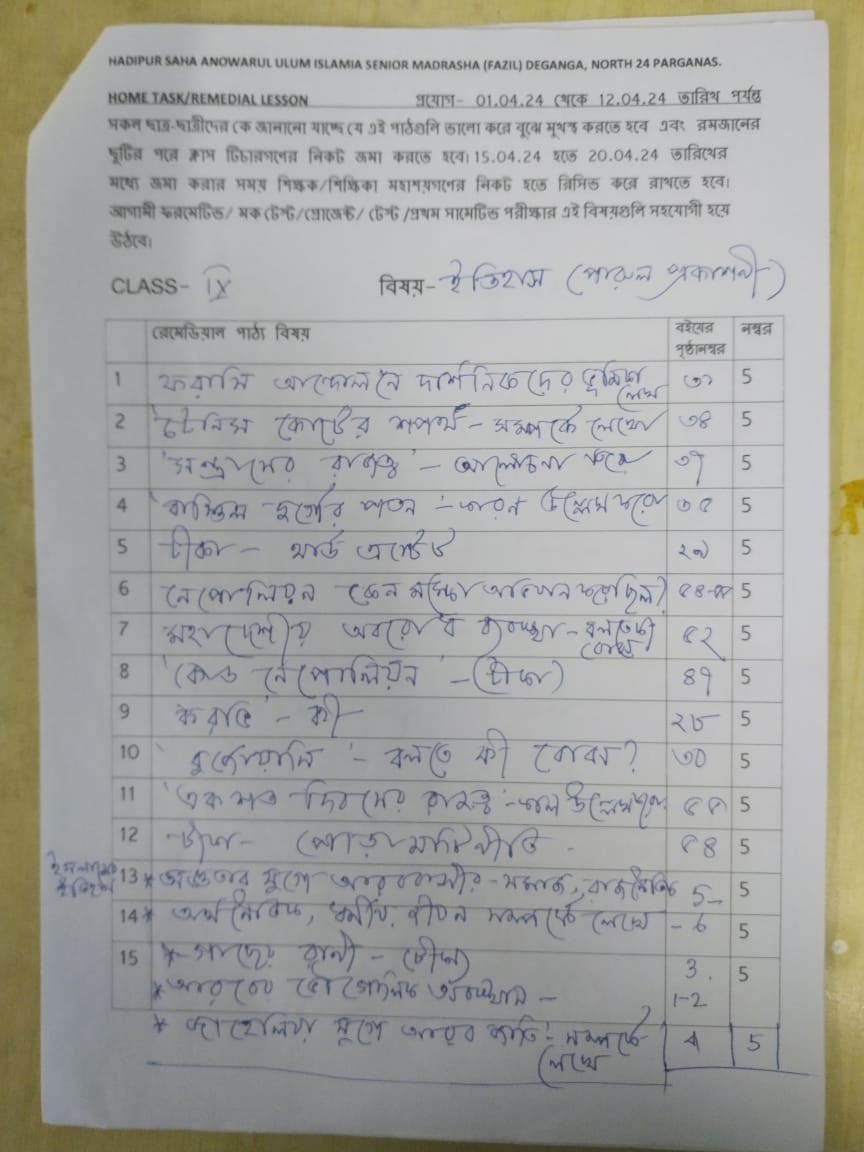 HADIPUR SAHA ANOWARUL ULUM ISLAMIA SENIOR MADRASHA (FAZIL) DEGANGA, NORTH 24 PARGANAS.
HOME TASK/REMEDIAL LESSON প্রয়োগ- 01.04.24 থেকে 12.04.24 তারিখ পর্যন্ত
সকল ছাত্র-ছাত্রীদের কে জানানো যাচ্ছে যে এই পাঠগুলি ভালো করে বুঝে মুখস্ত করতে হবে এবং রমজানের
ছুটির পরে ক্লাস টিচারগণের নিকট জমা করতে হবে। 15.04.24 হতে 20.04.24 তারিখের
মধ্যে জমা করার সময় শিক্ষক/শিক্ষিকা মহাশয়গণের নিকট হতে রিসিভ করে রাখতে হবে।
আগামী ফরমেটিভ/ মক টেস্ট/প্রোজেক্ট/ টেস্ট /প্রথম সামেটিভ পরীক্ষার এই বিষয়গুলি সহযোগী হয়ে
উঠবে।
CLASS- IX বিষয়- ইতিহাস (পারুল প্রকাশনী)
রেমেডিয়াল পাঠ্য বিষয় বইয়ের পৃষ্ঠানম্বর নম্বর
1 ফরাসি আন্দোলনে দার্শনিকদের ভূমিকা লেখ 5
2 'টেনিস কোর্টের শপথ' - সম্পর্কে লেখো ৩৪ 5
3 'সন্ত্রাসের রাজত্ব' - আলোচনা করো ৩৭ 5
4 'বাস্তিল দুর্গের পতন' - কারন উল্লেখ করো ৩৫ 5
5 টীকা - থার্ড এস্টেট ২৯ 5
6 নেপোলিয়ন কেন মস্কো অভিযান করেছিল? 5
7 মহাদেশীয় অবরোধ ব্যবস্থা - বলতে কী বোঝ ৫২ 5
8 'কোড নেপোলিয়ন' - (টীকা) ৪৭ 5
9 করভি - কী ২৮ 5
10 'বুর্জোয়াসি' - বলতে কী বোঝ? ৩০ 5
11 'একশত দিবসের রাজত্ব' - উল্লেখ 5
12 টীকা - পোড়ামাটি নীতি - ৫৪ 5
ইসলামের ইতিহাস
13 * অজ্ঞতার যুগে আরববাসীর - সমাজ, রাজনৈতিক 5- 5
14 * অর্থনৈতিক, ধর্মীয়, জীবন সম্পর্কে লেখ - 6 5
15 * রানী - (টীকা) 3. 5
* আরবের ভৌগোলিক অবস্থান - 1-2
* জাহেলিয়া যুগে আরব জাতি - সম্পর্কে লেখ 5